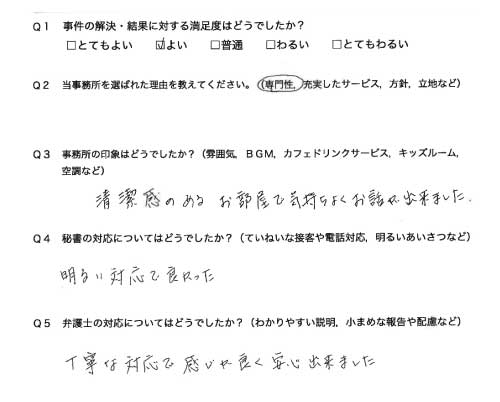 Q1 事件の解決・結果に対する満足度はどうでしたか?
□とてもよい ☑よい □普通 □わるい □とてもわるい
Q2 当事務所を選ばれた理由を教えてください。(専門性,充実したサービス,方針,立地など)
Q3 事務所の印象はどうでしたか?(雰囲気,BGM,カフェドリンクサービス,キッズルーム,
空調など)
清潔感のある お部屋で気持ちよくお話が出来ました.
Q4 秘書の対応についてはどうでしたか?(ていねいな接客や電話対応,明るいあいさつなど)
明るい対応で良かった
Q5 弁護士の対応についてはどうでしたか?(わかりやすい説明,小まめな報告や配慮など)
丁寧な対応で感じが良く安心出来ました